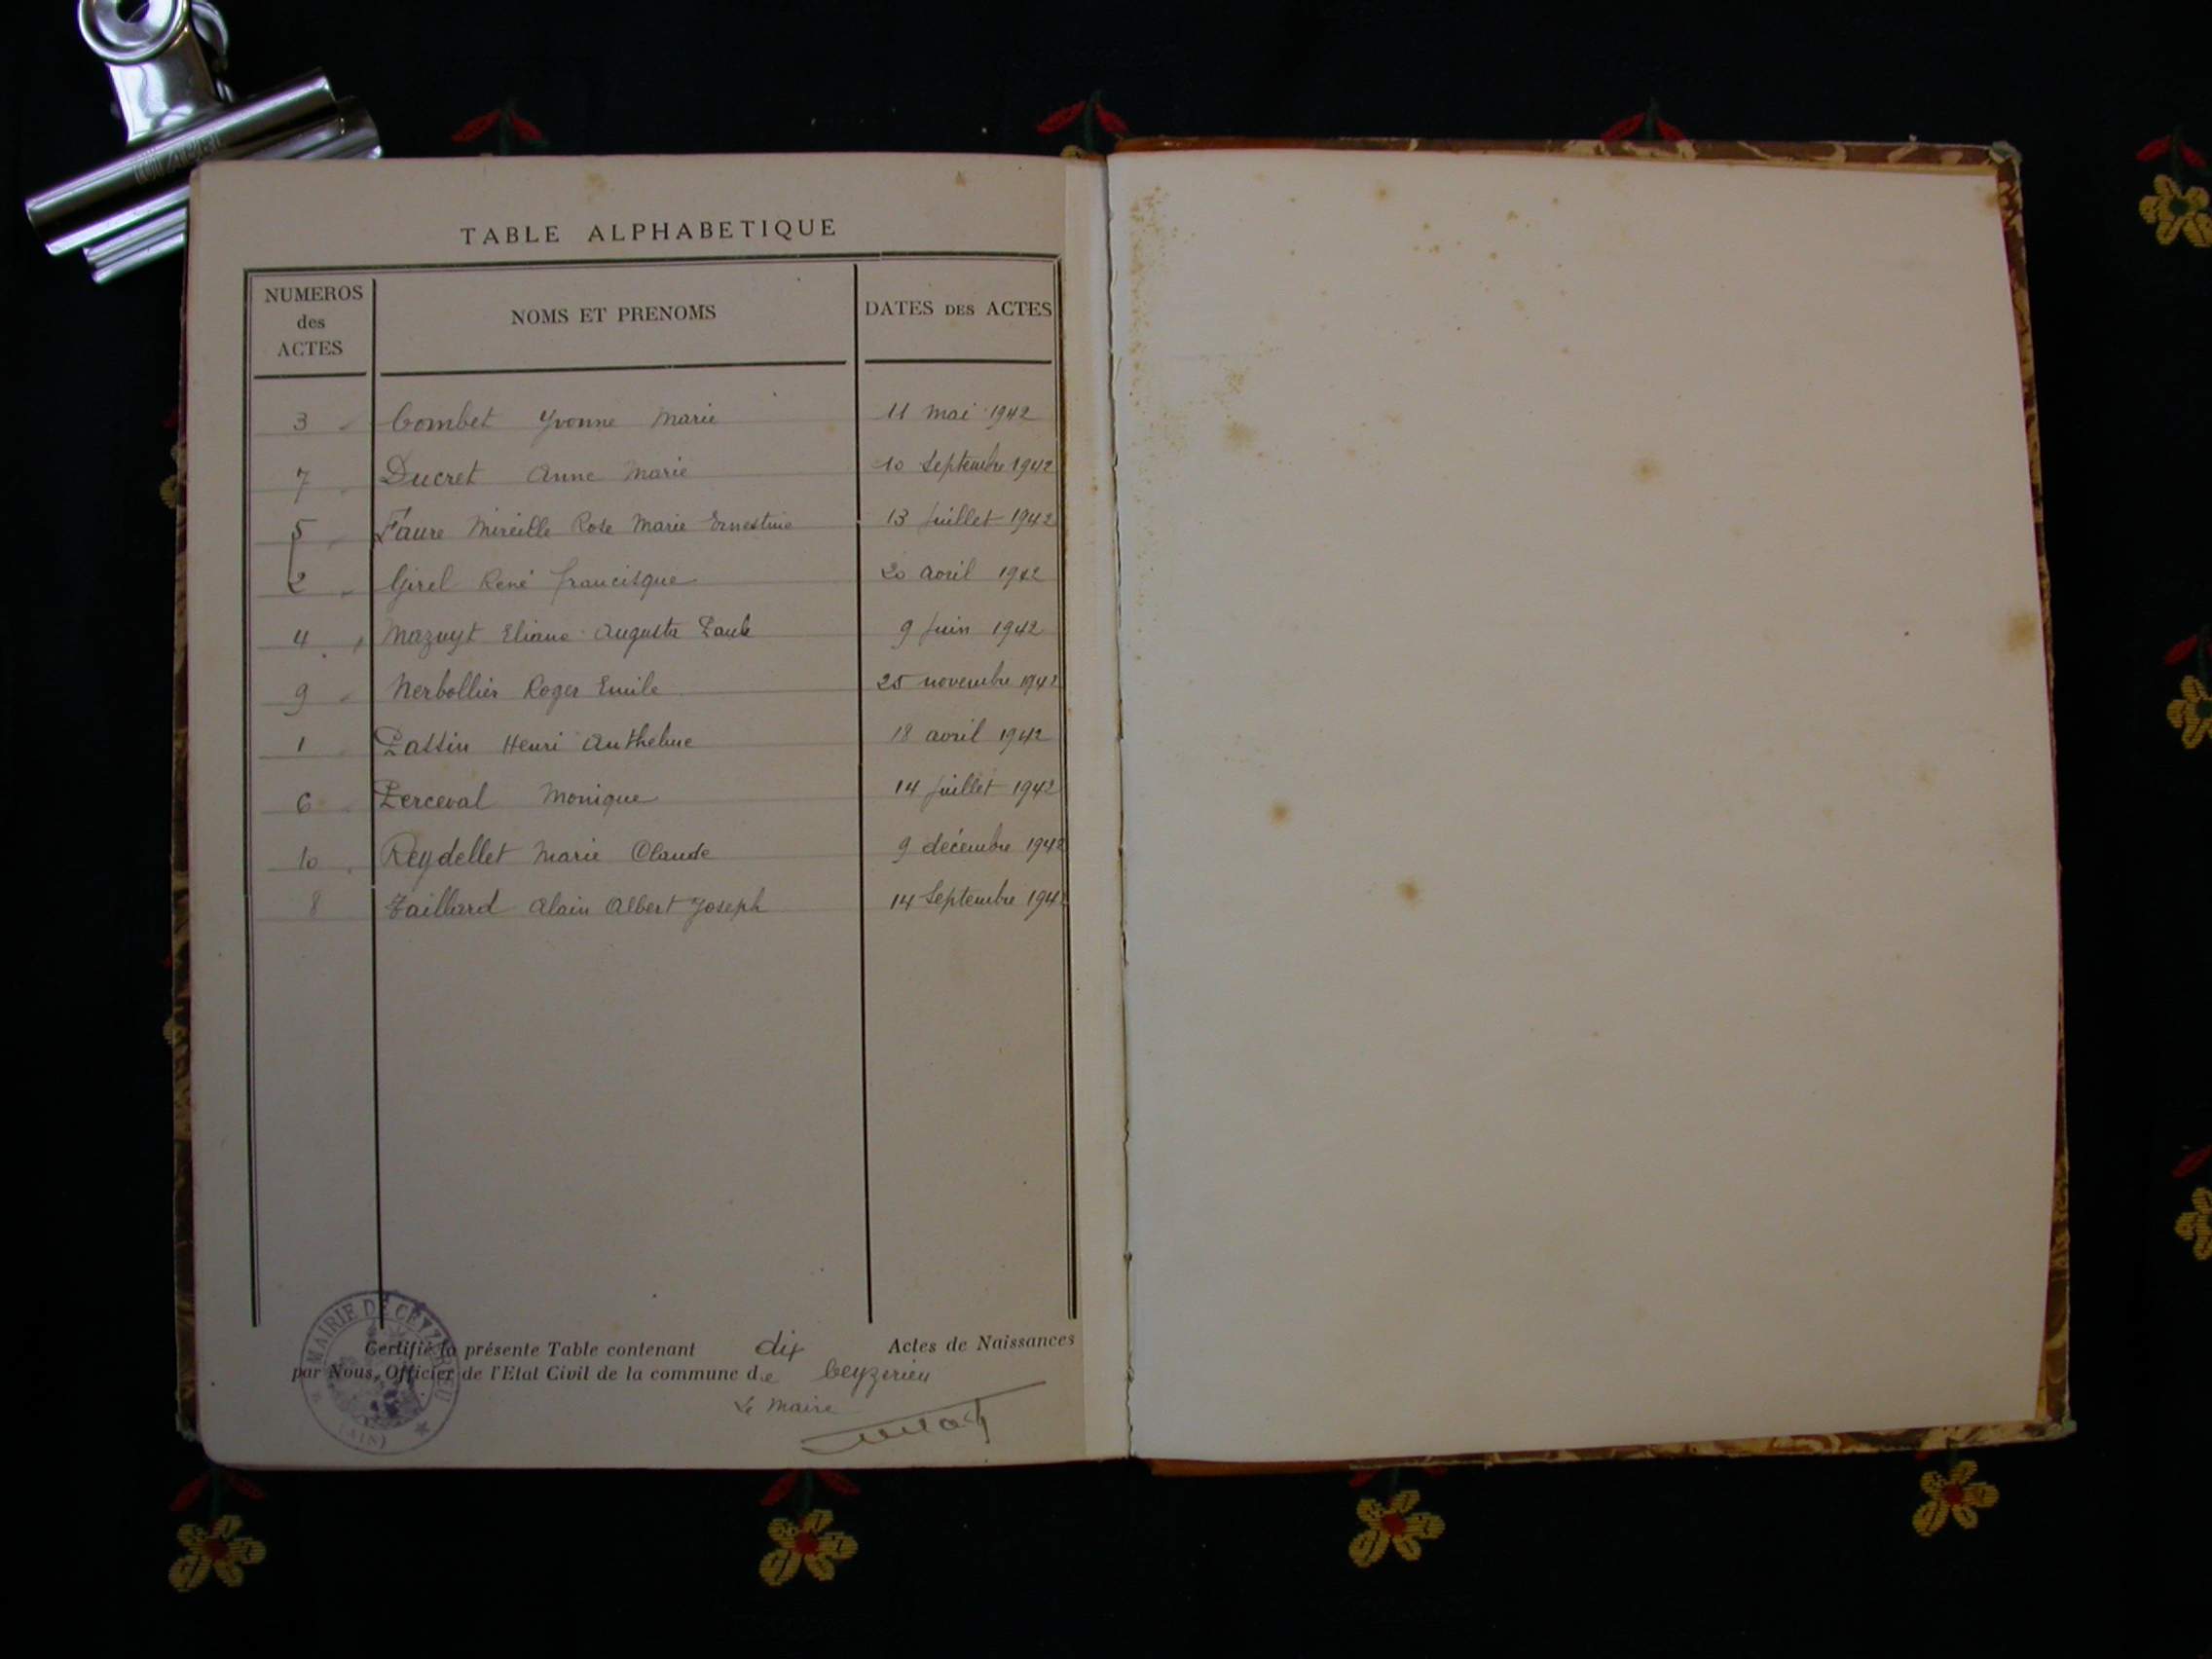 TABLE ALPHABETIQUE
NUMEROS des ACTES NOMS ET PRENOMS DATES DES ACTES
3 Combet Yvonne Marie 11 mai 1942
7 Ducret Anne Marie 10 Septembre 1942
5 Faure Mireille Rose Marie Ernestine 13 Juillet 1942
2 Girel René Francisque 20 avril 1942
4 Mazuyt Eliane Augusta Paule 9 Juin 1942
9 Nerbollier Roger Emile 25 novembre 1942
1 Passin Henri Anthelme 18 avril 1942
6 Perceval Monique 14 Juillet 1942
10 Reydellet Marie Claude 9 décembre 1942
8 Taillard Alain Albert Joseph 14 Septembre 1942
Certifié la présente Table contenant dix Actes de Naissances
par Nous, Officier de l'Etat Civil de la commune de Ceyzerieu
Le Maire
MAIRIE DE CEYZERIEU
(AIN)